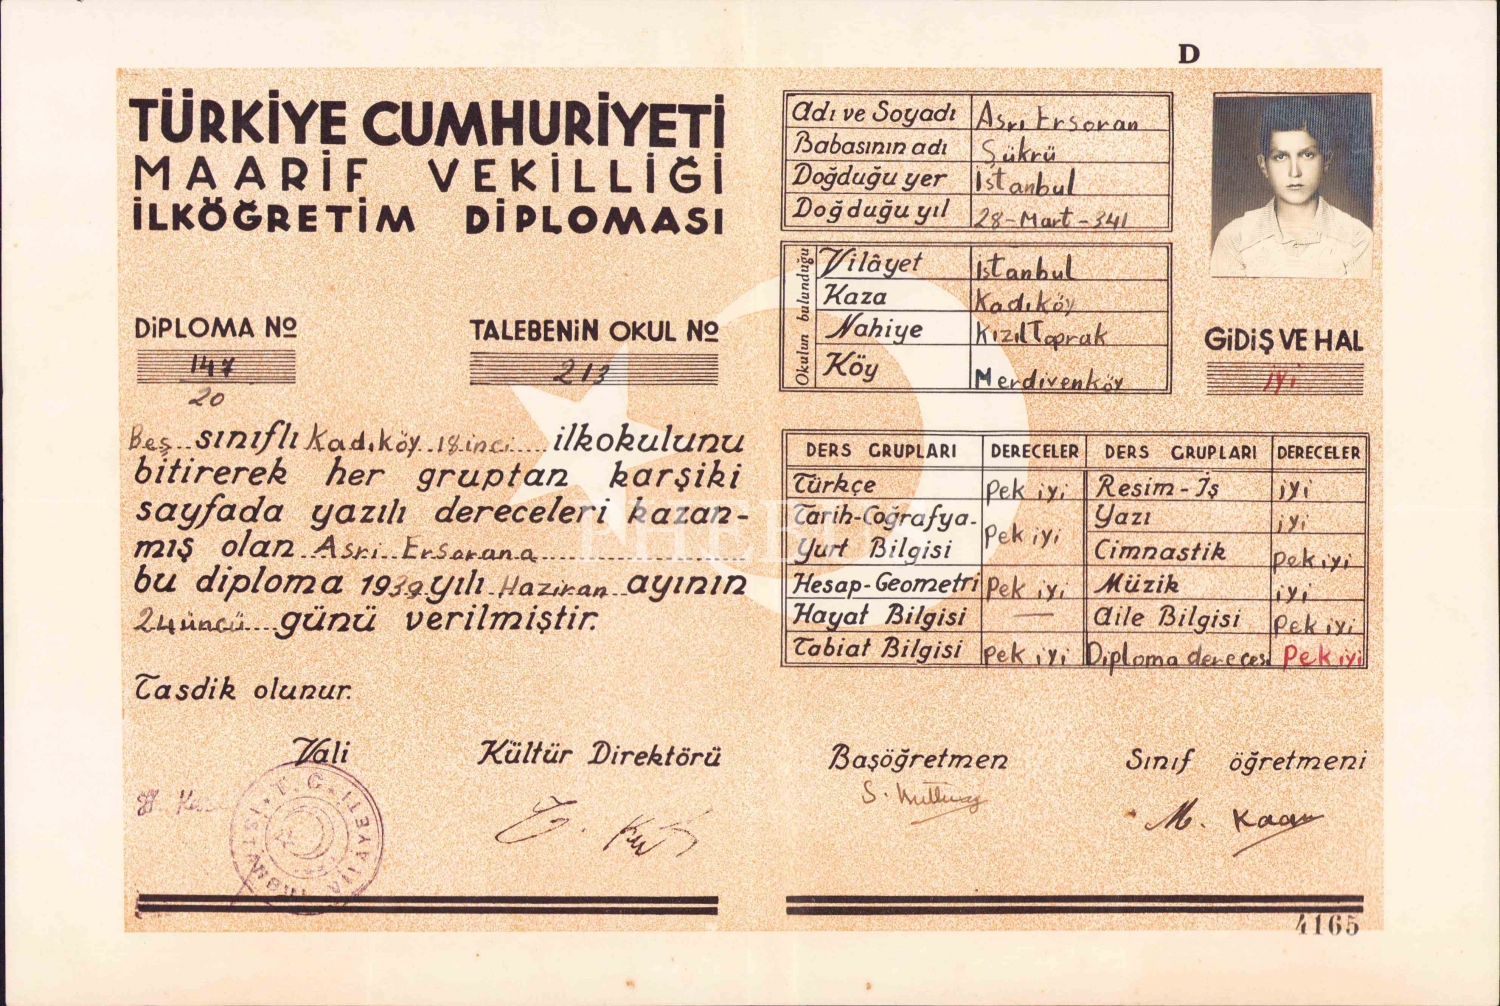 D
TÜRKİYE CUMHURİYETİ
MAARİF VEKİLLİĞİ
İLKÖĞRETİM DİPLOMASI
DİPLOMA Nº
147
20
TALEBENİN OKUL Nº
213
Beş sınıflı Kadıköy 18 inci ilkokulunu
bitirerek her gruptan karşıki
sayfada yazılı dereceleri kazan-
mış olan Asri Ersorana
bu diploma 1939 yılı Haziran ayının
24 üncü günü verilmiştir.
Tasdik olunur.
Vali
Kültür Direktörü
T.C. İSTANBUL VİLAYETİ
Adı ve Soyadı Asrı Ersoran
Babasının adı Şükrü
Doğduğu yer İstanbul
Doğduğu yıl 28-Mart-341
Okulun bulunduğu
Vilâyet İstanbul
Kaza Kadıköy
Nahiye KızılToprak
Köy Merdivenköy
GİDİŞ VE HAL
iyi
DERS GRUPLARI DERECELER DERS GRUPLARI DERECELER
Türkçe Pek iyi Resim-İş iyi
Tarih-Coğrafya- Yazı iyi
Yurt Bilgisi Pek iyi Cimnastik Pek iyi
Hesap-Geometri Pek iyi Müzik iyi
Hayat Bilgisi — Aile Bilgisi Pek iyi
Tabiat Bilgisi Pek iyi Diploma derecesi Pek iyi
Başöğretmen
Sınıf öğretmeni
M. Kaan
4165